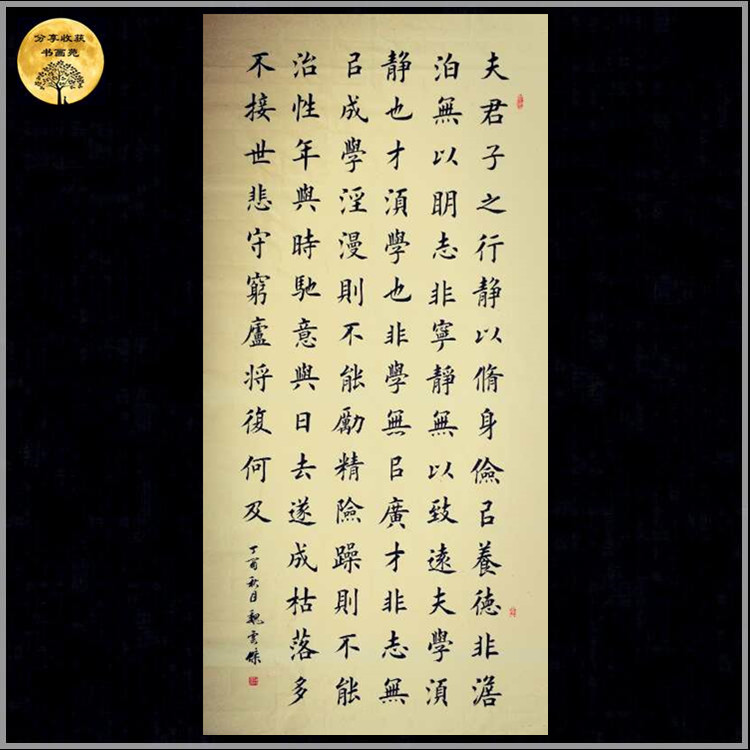 分享收获
书画苑
夫君子之行静以脩身儉㠯養德非澹
泊無以眀志非寧静無以致遠夫學湏
静也才湏學也非學無㠯廣才非志無
㠯成學淫漫則不能勵精險躁則不能
治性年與時馳意與日去遂成枯落多
不接世悲守窮廬將復何及
丁酉秋月魏雲傑